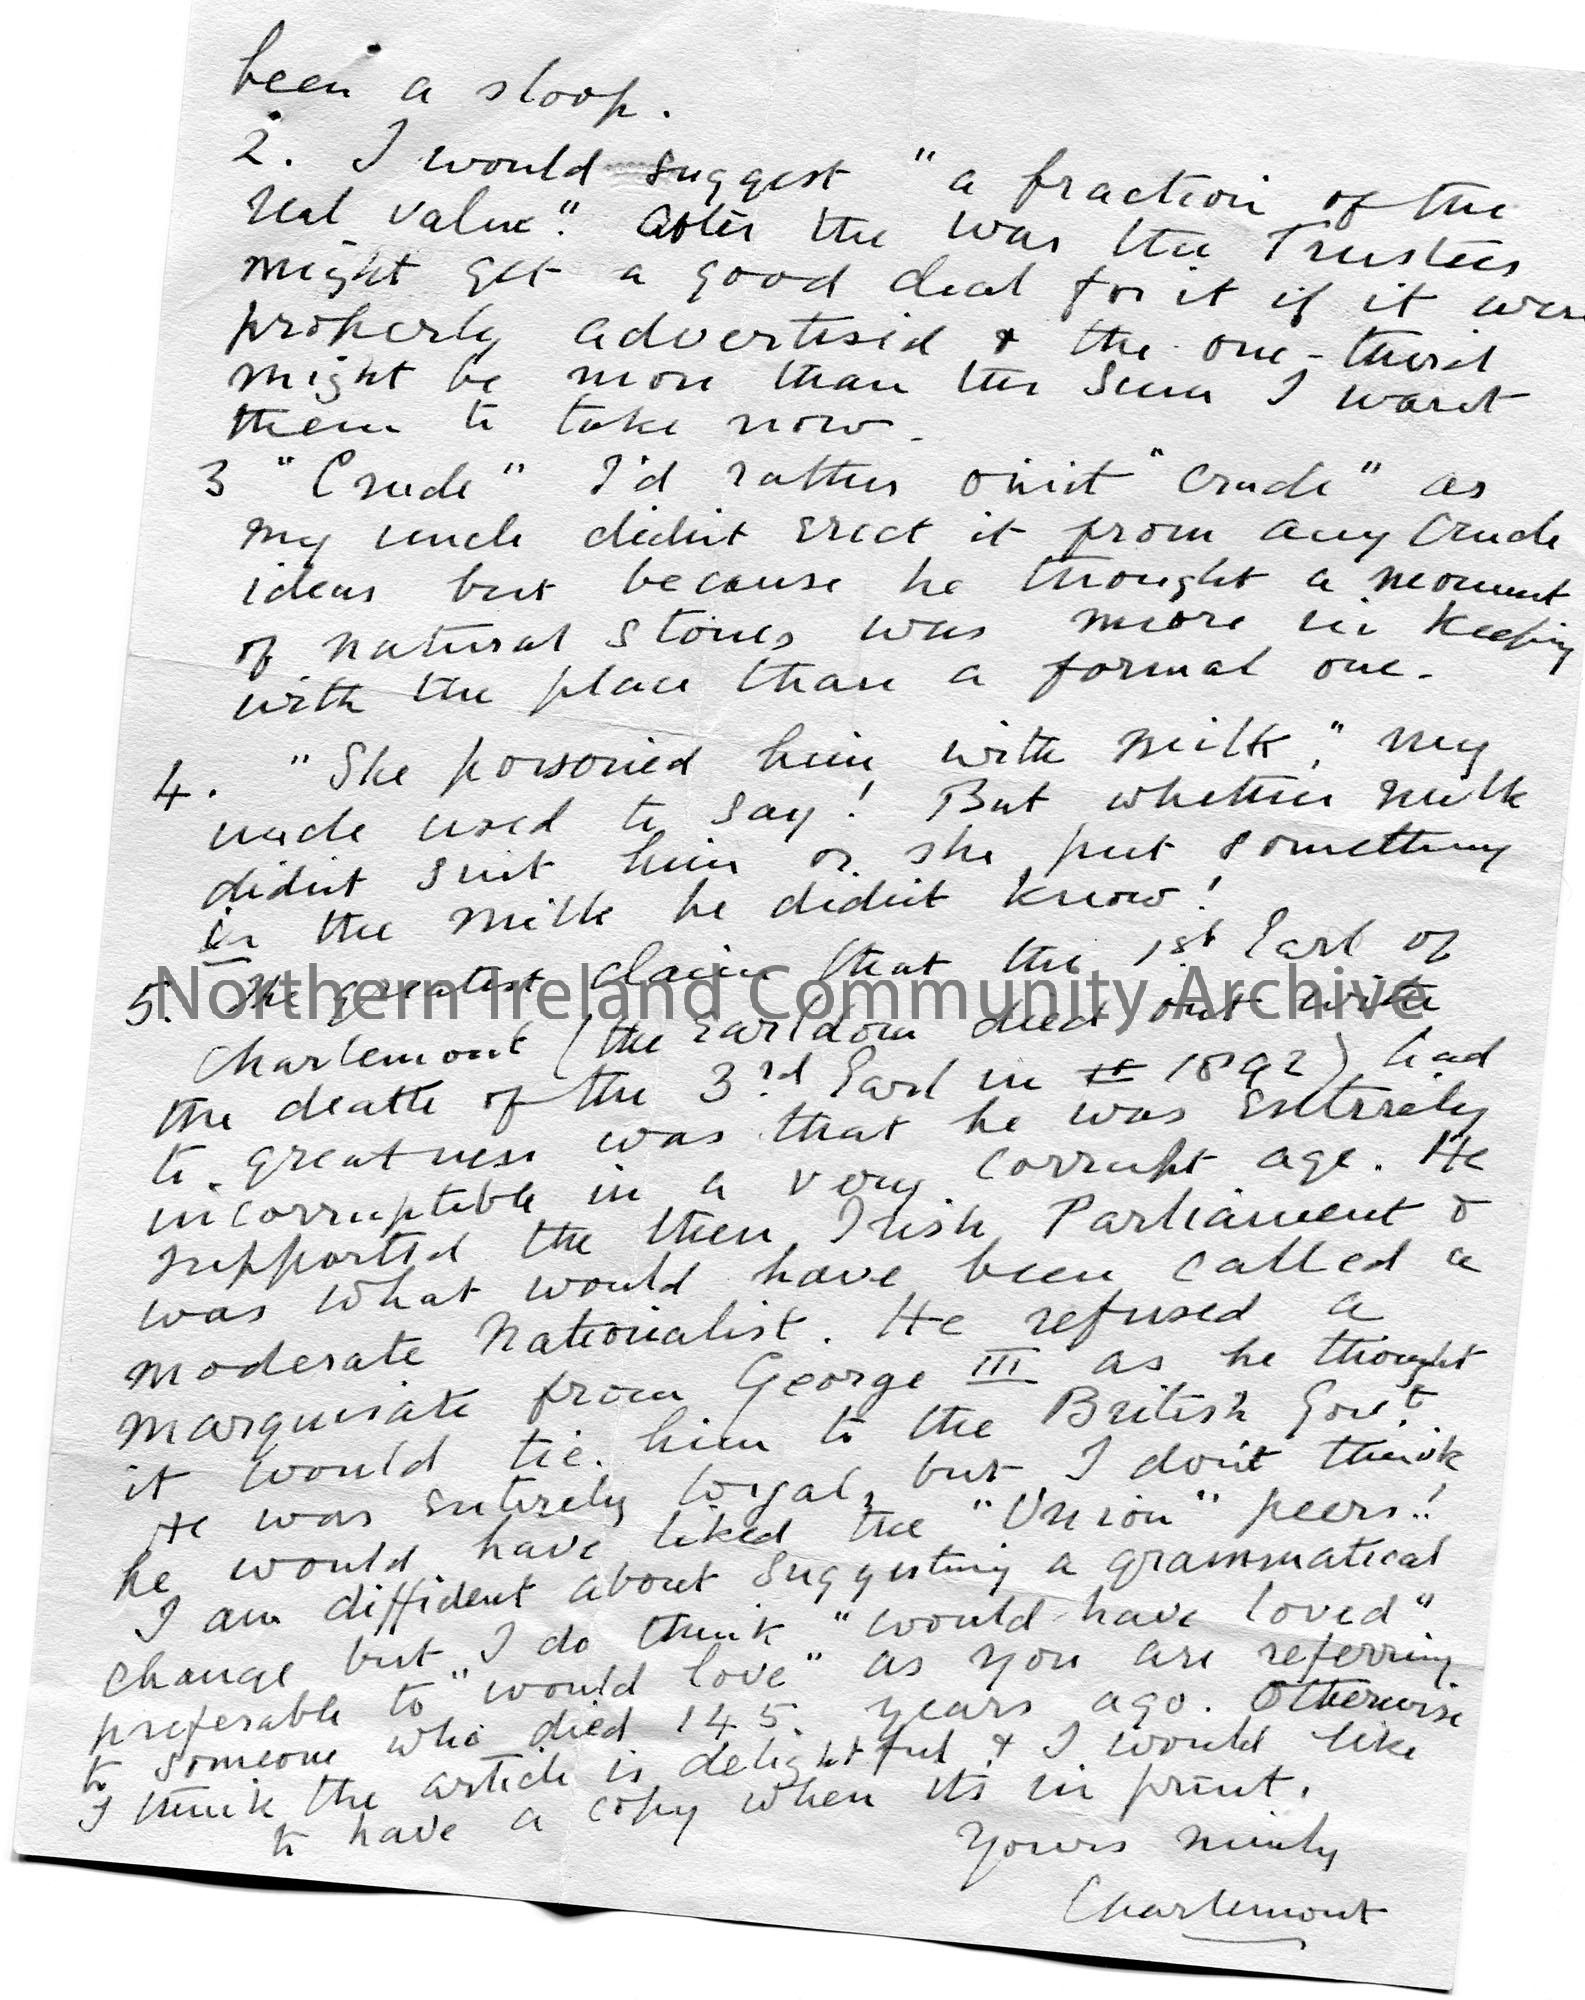 been a sloop.
2. I would suggest "a fraction of the
real value". After the was the Trustees
might get a good deal for it if it were
properly advertised & the one-third
might be more than the sum I want
them to take now.
3 "Crude" I'd rather omit "crude" as
my uncle didn't erect it from any crude
ideas but because he thought a monument
of natural stones was more in keeping
with the place than a formal one.
4. "She poisoned him with milk", my
uncle used to say! But whether milk
didn't suit him or she put something
in the milk he didn't know!
5. The greatest claim that the 1st Earl of
Charlemont (the Earldom died out with
the death of the 3rd Earl in 1892) had
to greatness was that he was entirely
incorruptible in a very corrupt age. He
supported the then Irish Parliament &
was what would have been called a
moderate Nationalist. He refused a
marquisate from George III as he thought
it would tie him to the British Govt.
He was entirely loyal, but I don't think
he would have liked the "Union" peers!!
I am diffident about suggesting a grammatical
change but I do think "would have loved"
preferable to "would love" as you are referring
to someone who died 145 years ago. Otherwise
I think the article is delightful & I would like
to have a copy when its in print.
Yours
Charlemont
Northern Ireland Community Archive